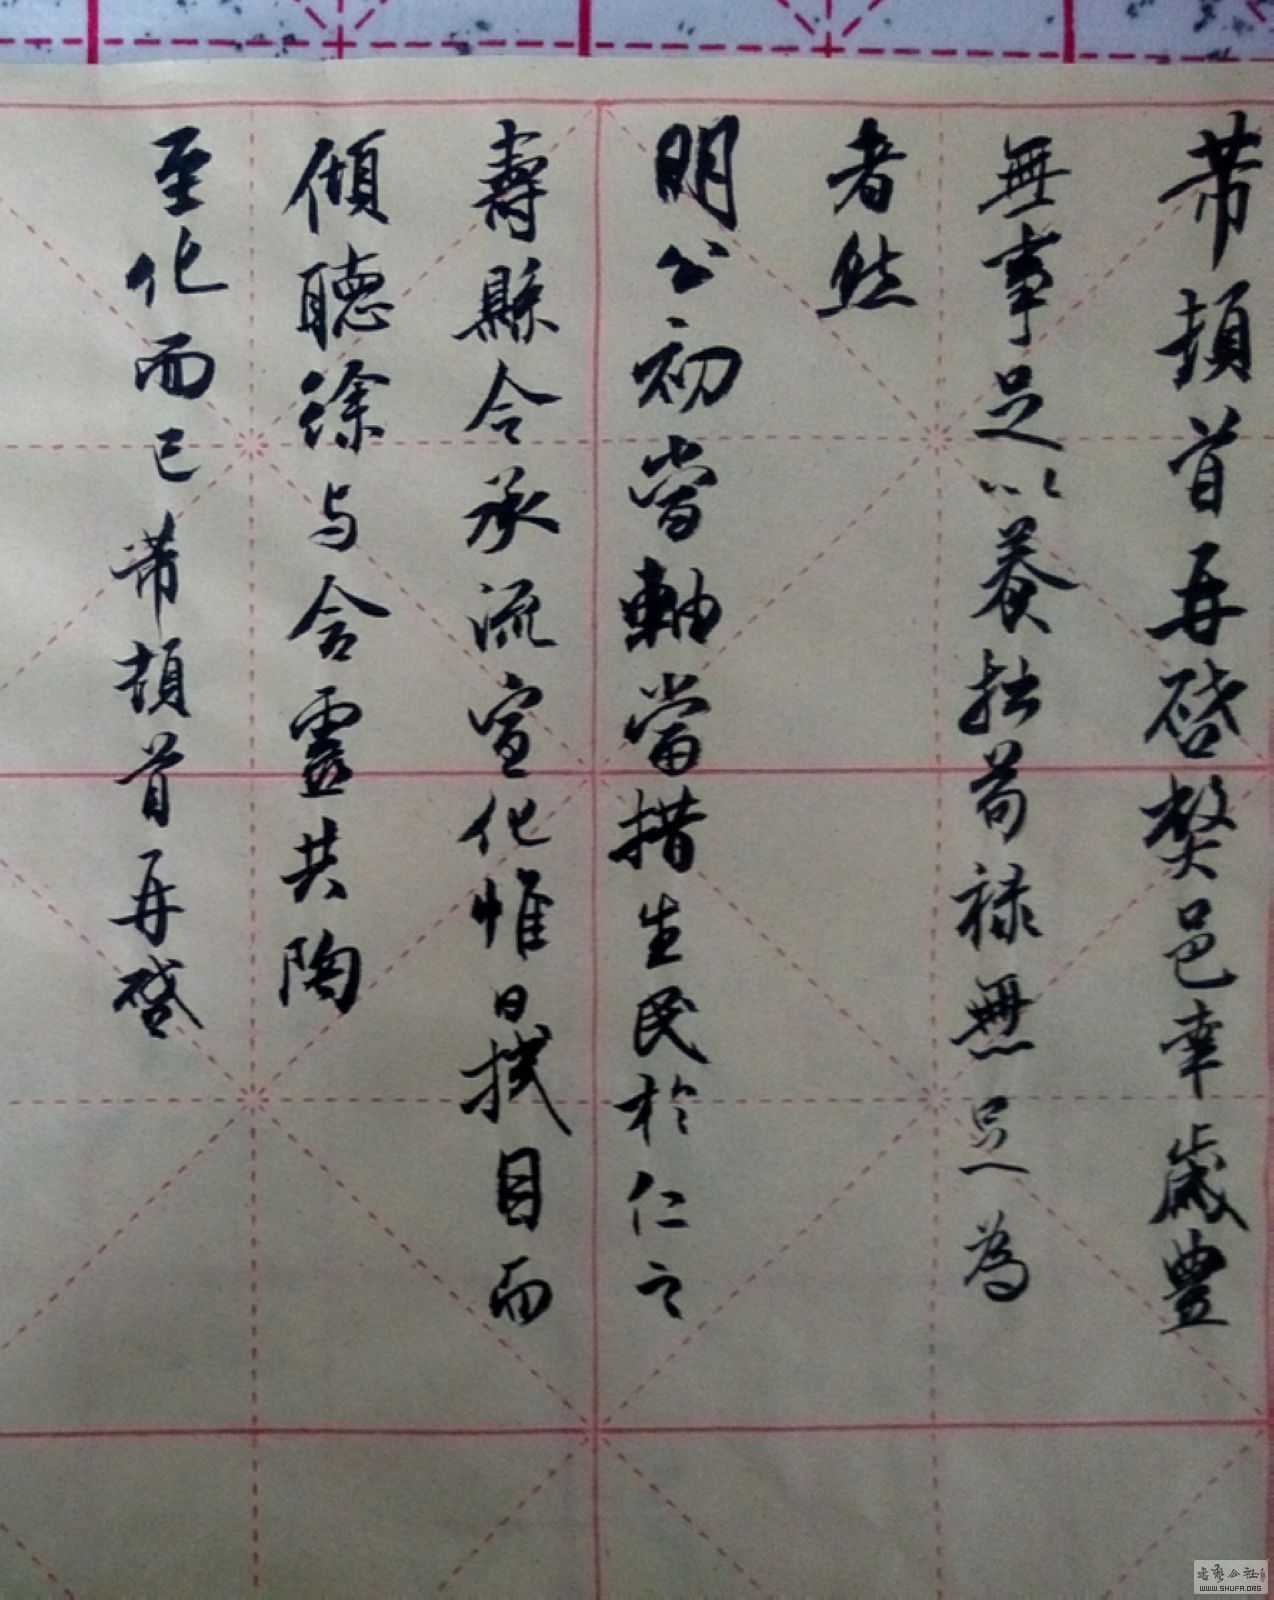 芾頓首再啓弊邑幸歲豐
無事足以養拙苟祿無足為
者然
明公初當軸當措生民於仁之
壽縣令承流宣化惟日拭目而
傾聽徐與含靈共陶
至化而已芾頓首再啓
書藝公社
WWW.SHUFA.ORG